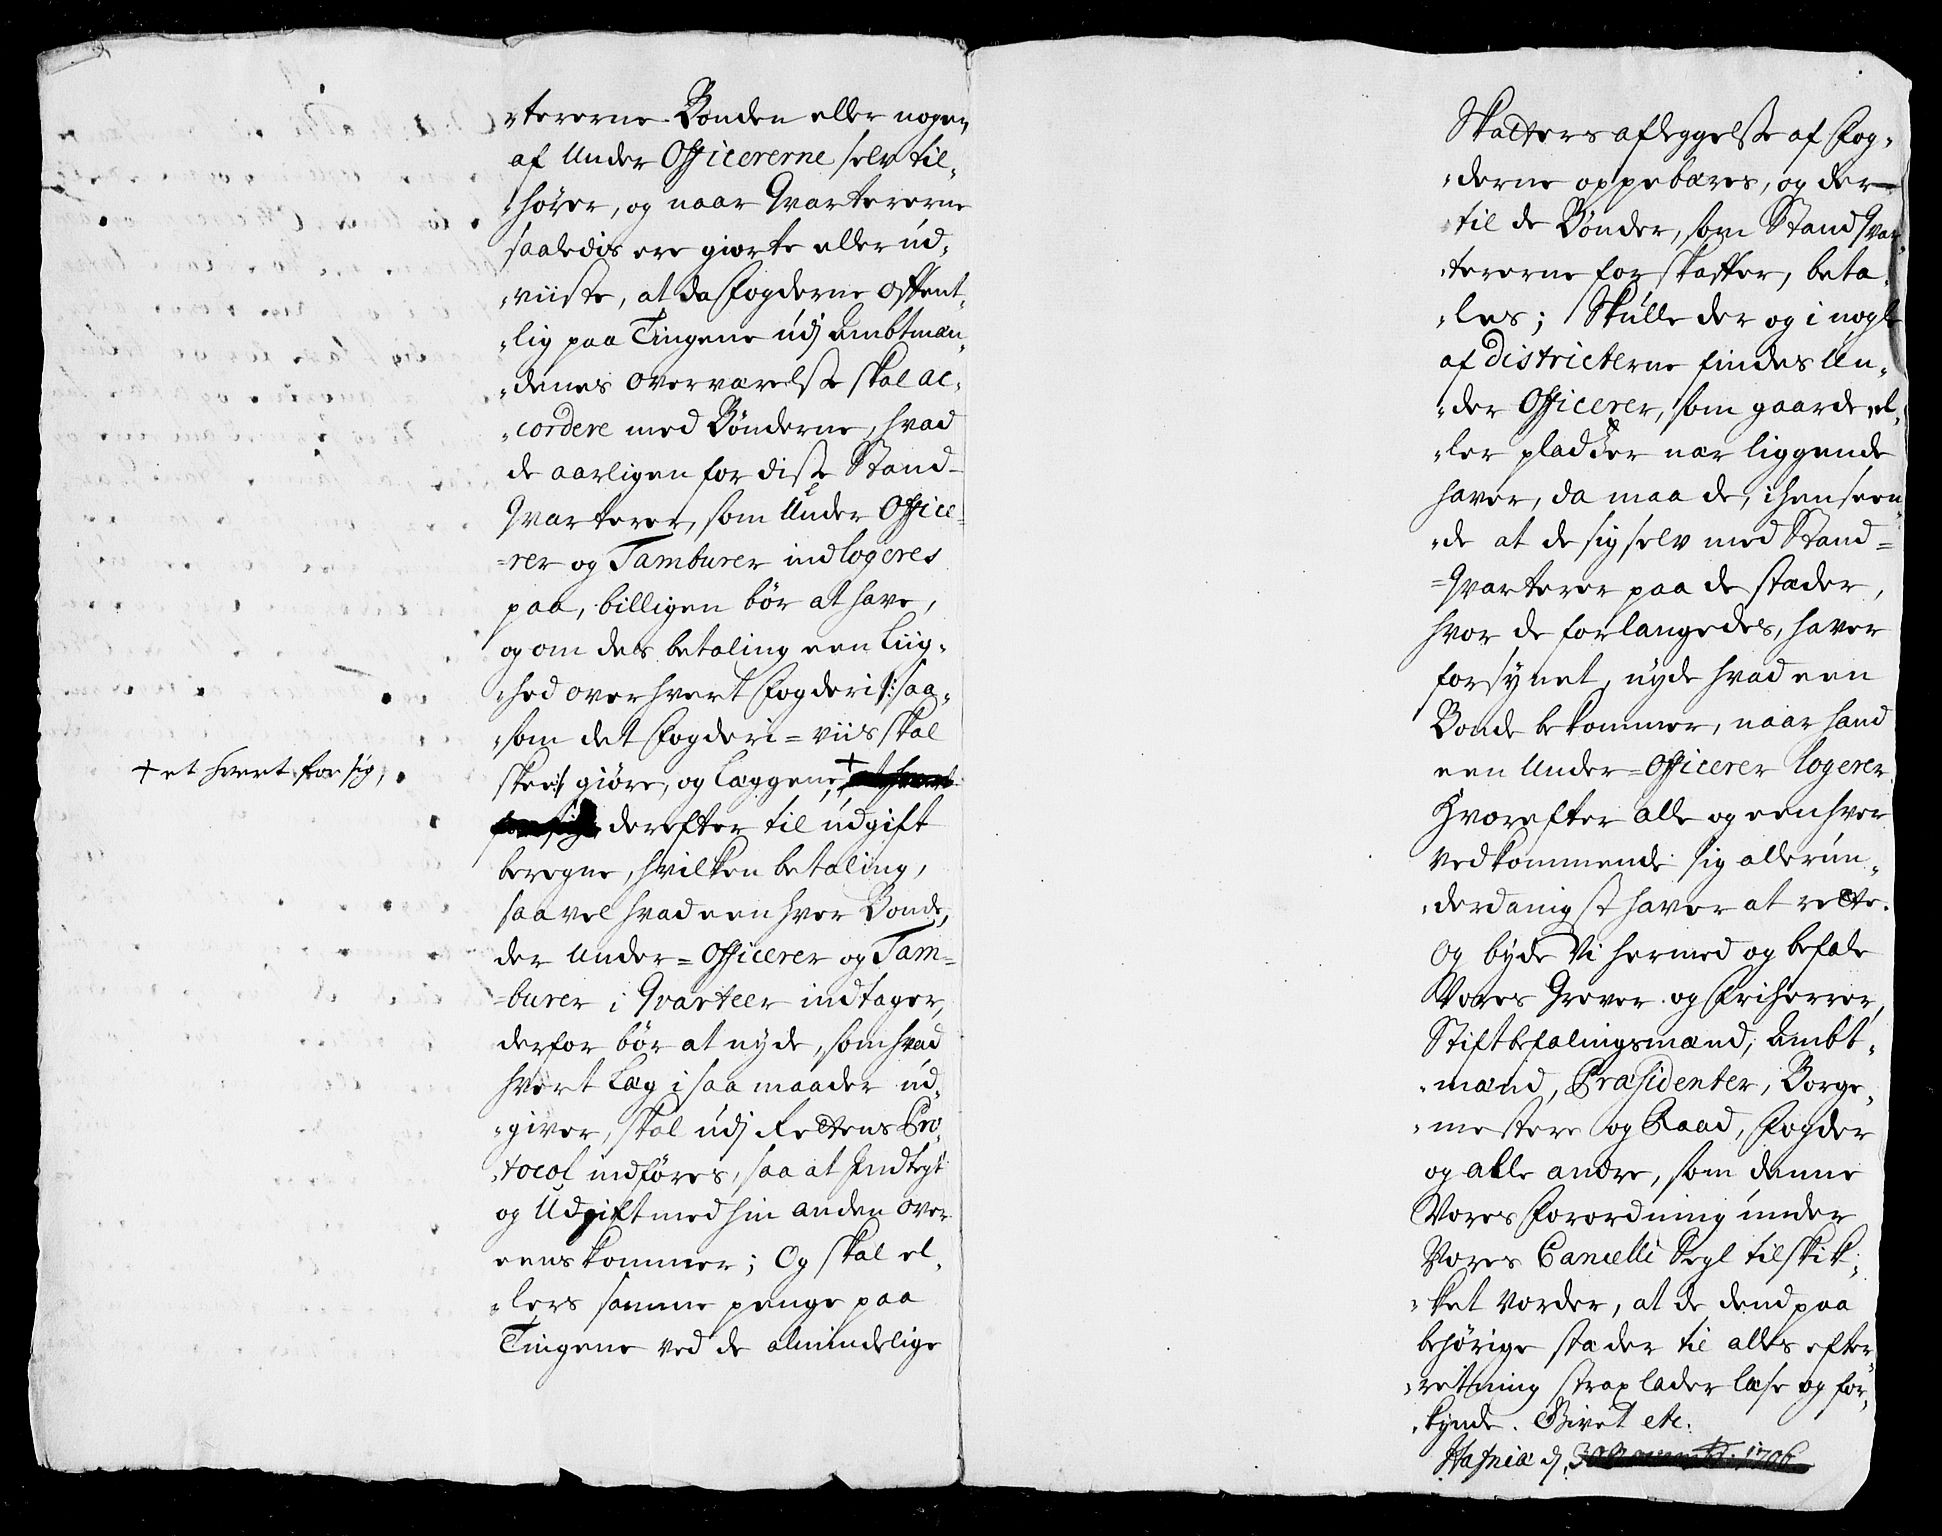 -tererne Bonden eller nogen
af Under Officererne selv til-
-hører, og naar Qvartererne
saaledis ere giorte eller ud-
-viiste, at da Fogderne offent-
-lig paa Tingene udj Ambtmæn-
-denes overværelse skal ac-
-cordere med Bønderne, hvad
de aarligen for disse Stand-
Qvarterer, som Under Office-
-rer og Tamburer indlogeres
paa, billigen bør at have,
og om des betaling een Liig-
-hed over hvert Fogderi /: saa-
-som det Fogderi=viis skal
skee :/ giøre, og Læggene, +
+ et hvert for sig,
derefter til udgift
beregne, hvilken betaling,
saavel hvad een hver Bonde,
der Under=Officerer og Tam=
=burer i Qvarteer indtager,
derfor bør at nyde, som hvad
hvert Læg i saa maader ud-
-giver, skal udj Rettens Pro-
-tocol indføres, saa at Indtegt
og Udgift med hin anden over
eens kommer; Og skal el-
-lers samme penge paa
Tingene ved de almindelige
Skatters aflæggelse af Fog-
-derne oppebæres, og der-
-til de Bønder, som Stand Qvar-
-tererne forskaffer, beta-
-les; Skulle der og i nogle
af Districterne findes Un-
-der Officerer, som gaarde el-
-ler pladser nær liggende
haver, da maa de, i henseen-
-de at de sig selv med Stand=
=Qvarterer paa de stæder,
hvor de forlangedes, haver
forsynet, nyde hvad een
Bonde bekommer, naar hand
een Under=Officerer logerer
Hvorefter alle og eenhver
vedkommende sig allerun-
-derdanigst haver at rette.
Og byde Vi hermed og befale
Vores Grever og Friherrer,
Stiftbefalingsmænd, Ambt-
-mænd, Præsidenter, Borge-
-mestere og Raad, Fogder
og alle andre, som denne
Vores Forordning under
Vores Cancelli Segl tilskik-
-ket vorder, at de dend paa
behørige stæder til alles efter-
-retning strax lader læse og for-
-kynde. Givet etc.
Hafniæ d. 30 Novemb: 1706